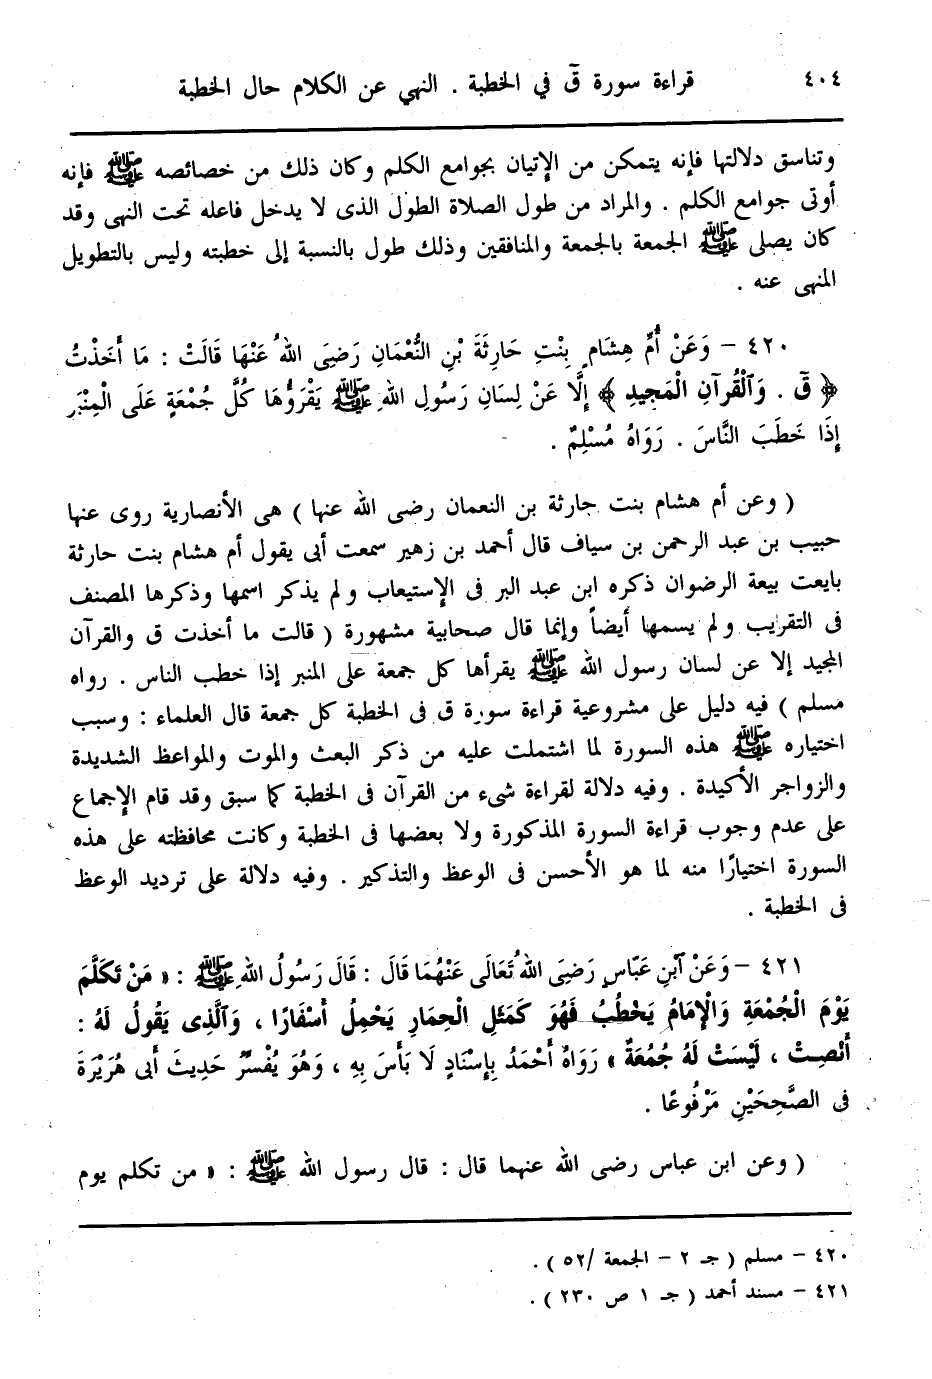 ٤٠٤ قراءة سورة قٓ في الخطبة . النهي عن الكلام حال الخطبة
وتناسق دلالتها فإنه يتمكن من الإتيان بجوامع الكلم وكان ذلك من خصائصه ﷺ فإنه
أوتى جوامع الكلم . والمراد من طول الصلاة الطول الذى لا يدخل فاعله تحت النهى وقد
كان يصلى ﷺ الجمعة بالجمعة والمنافقين وذلك طول بالنسبة إلى خطبته وليس بالتطويل
المنهى عنه .
٤٢٠ – وَعَنْ أُمِّ هِشَامٍ بِنْتِ حَارِثَةَ بْنِ النُّعْمَانِ رَضِىَ اللهُ عَنْهَا قَالَتْ : مَا أَخَذْتُ
﴿ قٓ . وَٱلْقُرآنِ الْمَجِيدِ ﴾ إِلَّا عَنْ لِسَانِ رَسُولِ اللهِ ﷺ يَقْرَؤُهَا كُلَّ جُمْعَةٍ عَلَى الْمِنْبَرِ
إِذَا خَطَبَ النَّاسَ . رَوَاهُ مُسْلِمٌ .
( وعن أم هشام بنت جارثة بن النعمان رضى الله عنها ) هى الأنصارية روى عنها
حبيب بن عبد الرحمن بن سياف قال أحمد بن زهير سمعت أبى يقول أم هشام بنت حارثة
بايعت بيعة الرضوان ذكره ابن عبد البر فى الإستيعاب ولم يذكر اسمها وذكرها المصنف
فى التقريب ولم يسمها أيضاً وإنما قال صحابية مشهورة ( قالت ما أخذت ق والقرآن
المجيد إلا عن لسان رسول الله ﷺ يقرأها كل جمعة على المنبر إذا خطب الناس . رواه
مسلم ) فيه دليل على مشروعية قراءة سورة ق فى الخطبة كل جمعة قال العلماء : وسبب
اختياره ﷺ هذه السورة لما اشتملت عليه من ذكر البعث والموت والمواعظ الشديدة
والزواجر الأكيدة . وفيه دلالة لقراءة شىء من القرآن فى الخطبة كما سبق وقد قام الإجماع
على عدم وجوب قراءة السورة المذكورة ولا بعضها فى الخطبة وكانت محافظته على هذه
السورة اختيارًا منه لما هو الأحسن فى الوعظ والتذكير . وفيه دلالة على ترديد الوعظ
فى الخطبة .
٤٢١ – وَعَنْ ٱبْنِ عَبَّاسٍ رَضِىَ اللهُ تَعَالَى عَنْهُمَا قَالَ : قَالَ رَسُولُ اللهِ ﷺ : « مَنْ تَكَلَّمَ
يَوْمَ الْجُمْعَةِ وَالْإمَامُ يَخْطُبُ فَهُوَ كَمَثَلِ الْحِمَارِ يَحْمِلُ أَسْفَارًا ، وَٱلَّذِى يَقُولُ لَهُ :
أَنْصِتْ ، لَيْسَتْ لَهُ جُمُعَةٌ » رَوَاهُ أَحْمَدُ بِإِسْنَادٍ لَا بَأْسَ بِهِ ، وَهُوَ يُفَسِّرُ حَدِيثَ أبى هُرَيْرَةَ
فى الصَّحِحَيْنِ مَرْفُوعًا .
( وعن ابن عباس رضى الله عنهما قال : قال رسول الله ﷺ : « من تكلم يوم
٤٢٠ – مسلم ( جـ ٢ – الجمعة /٥٢ ) .
٤٢١ – مسند أحمد ( جـ ١ ص ٢٣٠ ) .